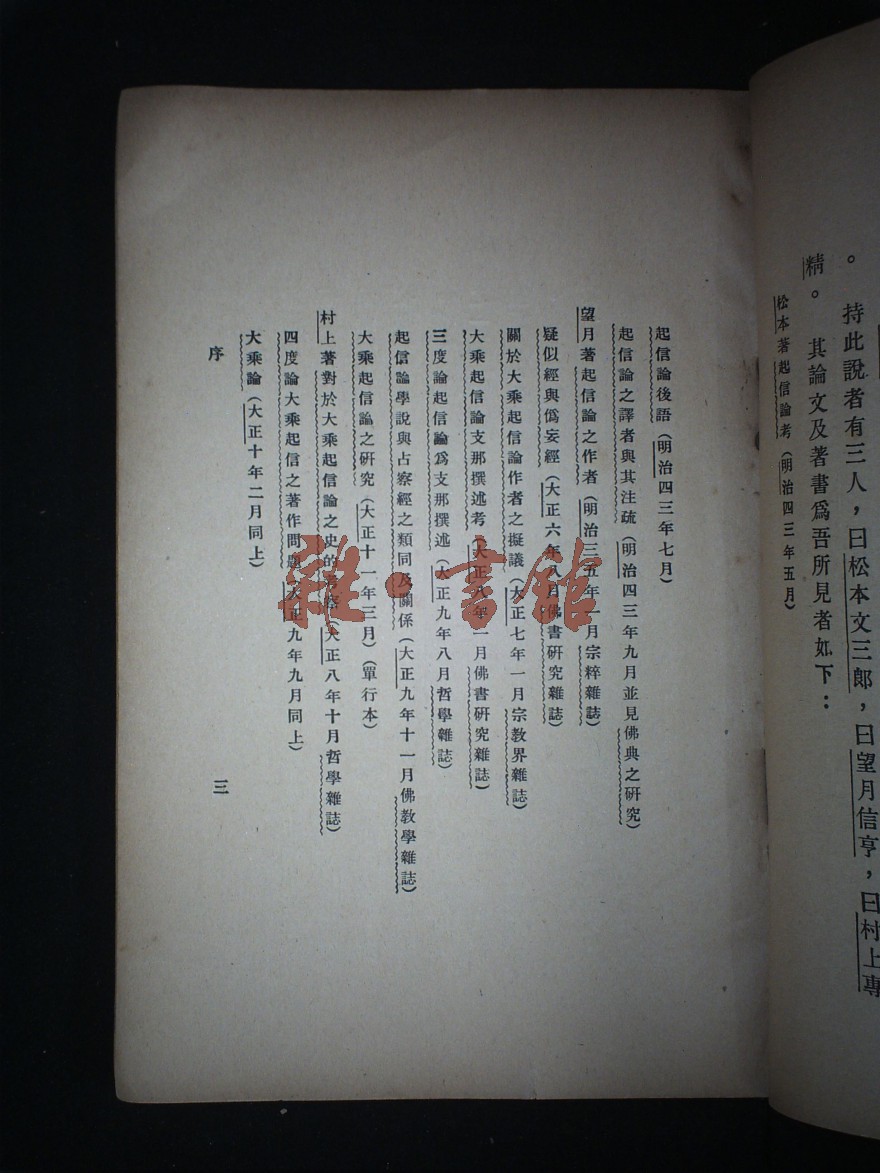 。持此說者有三人，曰松本文三郎，曰望月信亨，曰村上專
精。其論文及著書爲吾所見者如下：
松本著起信論考（明治四三年五月）
起信論後語（明治四三年七月）
起信論之譯者與其注疏（明治四三年九月並見佛典之研究）
望月著起信論之作者（明治三五年一月宗粹雜誌）
疑似經與僞妄經（大正六年八月佛書研究雜誌）
關於大乘起信論作者之擬議（大正七年一月宗教界雜誌）
大乘起信論支那撰述考（大正八年一月佛書研究雜誌）
三度論起信論爲支那撰述（大正九年八月哲學雜誌）
起信論學說與占察經之類同及關係（大正九年十一月佛教學雜誌）
大乘起信論之研究（大正十一年三月）（單行本）
村上著對於大乘起信論之史的考察（大正八年十月哲學雜誌）
四度論大乘起信之著作問題（大正九年九月同上）
大乘論（大正十年二月同上）
序
三
雜·書館